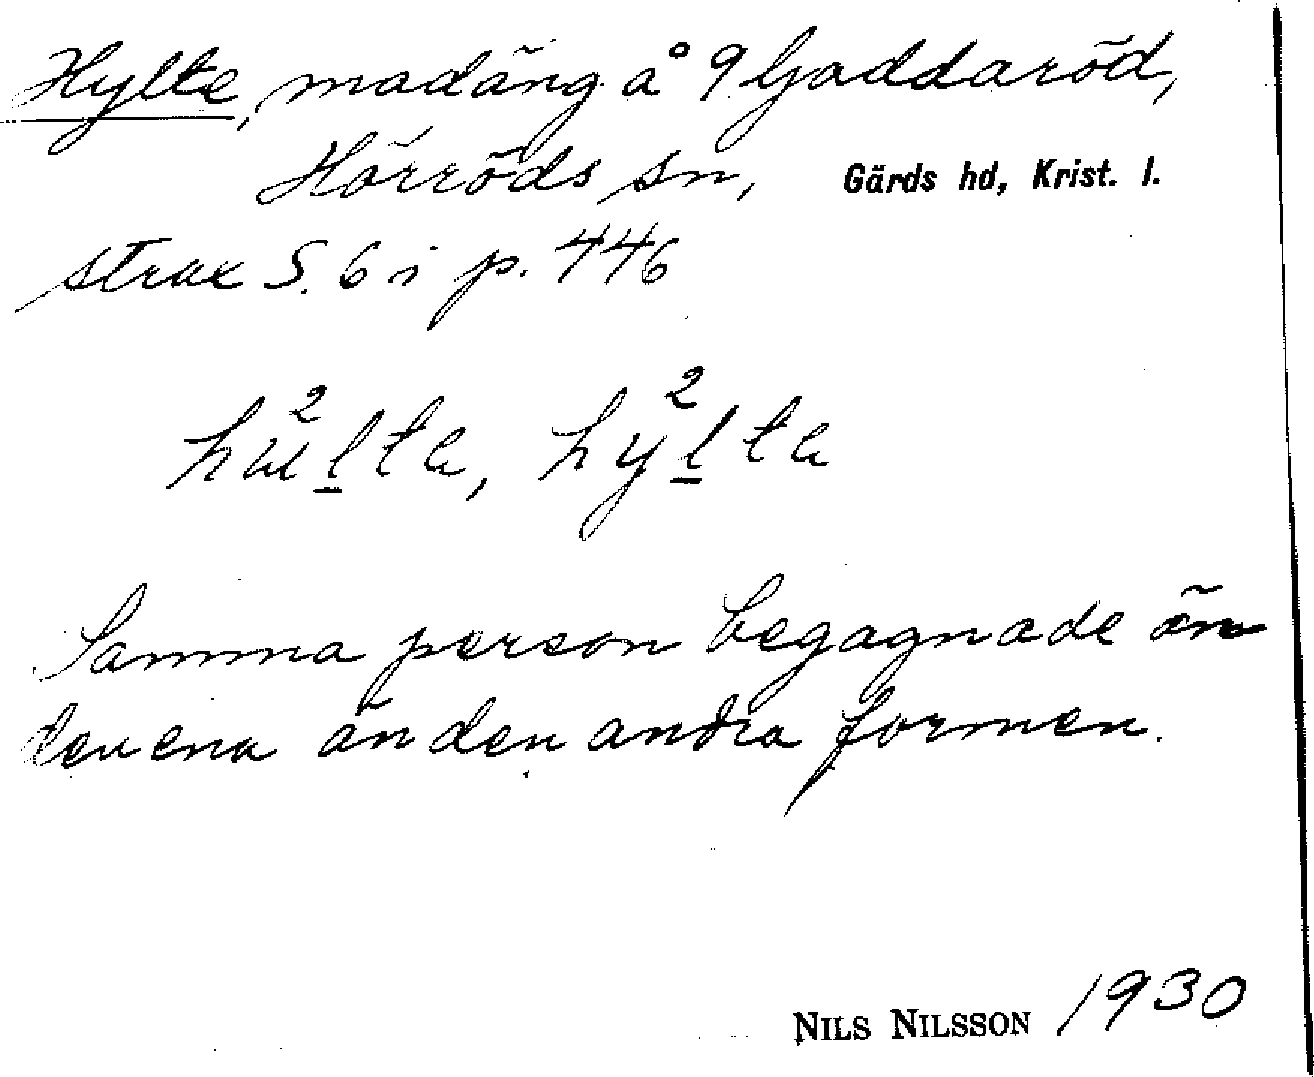 Hylte, madäng å 9 Gaddaröd,
Hörröds sn, Gärds hd, Krist. l.
strax S. 6 i p. 446
hu²lta, hy²lta
Samma person begagnade än
den ena än den andra formen.
NILS NILSSON 1930